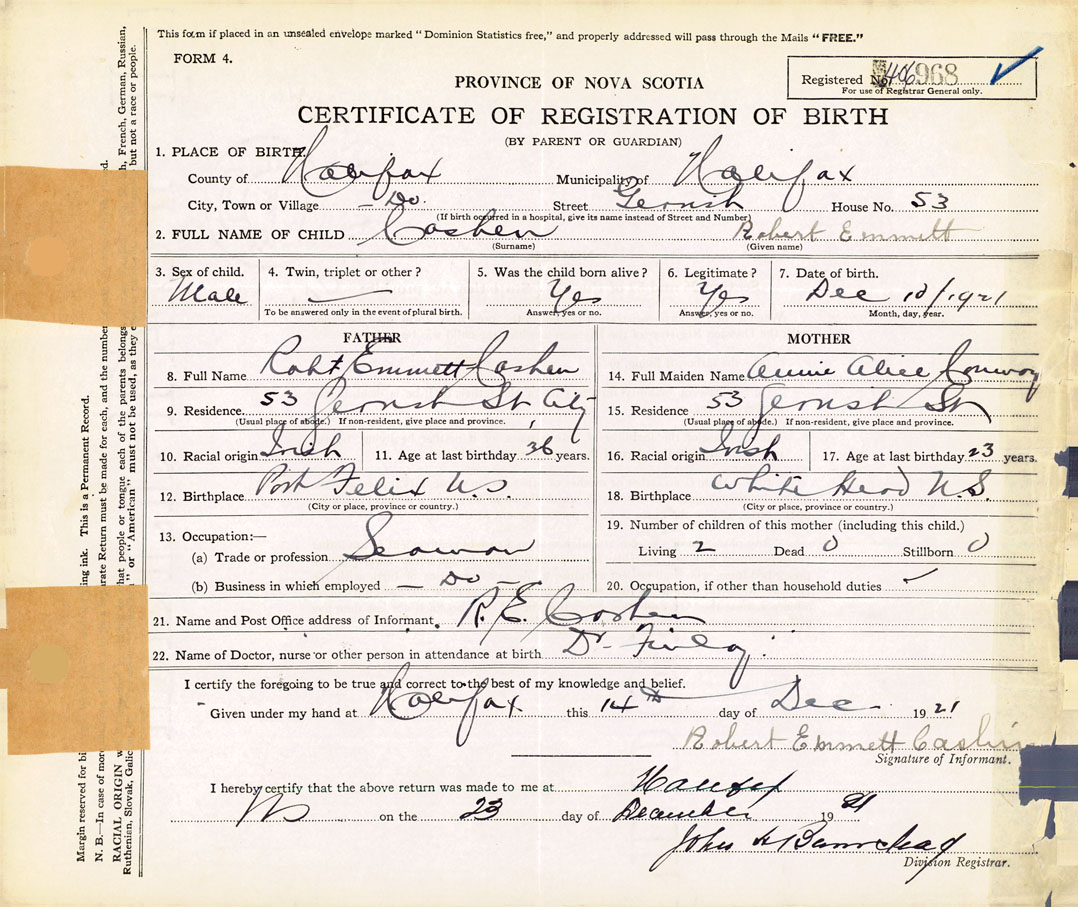 This form if placed in an unsealed envelope marked "Dominion Statistics free," and properly addressed will pass through the Mails "FREE."
FORM 4.
Registered No. 406968
For use of Registrar General only.
PROVINCE OF NOVA SCOTIA
CERTIFICATE OF REGISTRATION OF BIRTH
(BY PARENT OR GUARDIAN)
1. PLACE OF BIRTH.
County of Halifax Municipality of Halifax
City, Town or Village — Do. Street Gerrish House No. 53
(If birth occurred in a hospital, give its name instead of Street and Number)
2. FULL NAME OF CHILD Cashen Robert Emmett
(Surname) (Given name)
3. Sex of child. 4. Twin, triplet or other? 5. Was the child born alive? 6. Legitimate? 7. Date of birth.
Male — Yes Yes Dec 10/1921
To be answered only in the event of plural birth. Answer, yes or no. Answer, yes or no. Month, day, year.
FATHER MOTHER
8. Full Name Robt Emmett Cashen 14. Full Maiden Name Annie Alice Conway
9. Residence. 53 Gerrish St, City 15. Residence 53 Gerrish St
(Usual place of abode.) If non-resident, give place and province. (Usual place of abode.) If non-resident, give place and province.
10. Racial origin Irish 11. Age at last birthday 36 years. 16. Racial origin Irish 17. Age at last birthday 23 years.
12. Birthplace Port Felix N.S. 18. Birthplace White Head N.S.
(City or place, province or country.) (City or place, province or country.)
13. Occupation:— 19. Number of children of this mother (including this child.)
(a) Trade or profession Seaman Living 2 Dead 0 Stillborn 0
(b) Business in which employed — Do — 20. Occupation, if other than household duties
21. Name and Post Office address of Informant. R. E. Cashen
22. Name of Doctor, nurse or other person in attendance at birth Dr. Finlay
I certify the foregoing to be true and correct to the best of my knowledge and belief.
Given under my hand at Halifax this 14th day of Dec 1921
Robert Emmett Cashin
Signature of Informant.
I hereby certify that the above return was made to me at Halifax
NS on the 23 day of December 1921
John A
Division Registrar.
Margin reserved for bi
ing ink. This is a Permanent Record.
N. B.—In case of more
rate Return must be made for each, and the number
ed.
RACIAL ORIGIN w
hat people or tongue each of the parents belongs
h, French, German, Russian,
Ruthenian, Slovak, Galic
n" or "American" must not be used, as they e
but not a race or people.